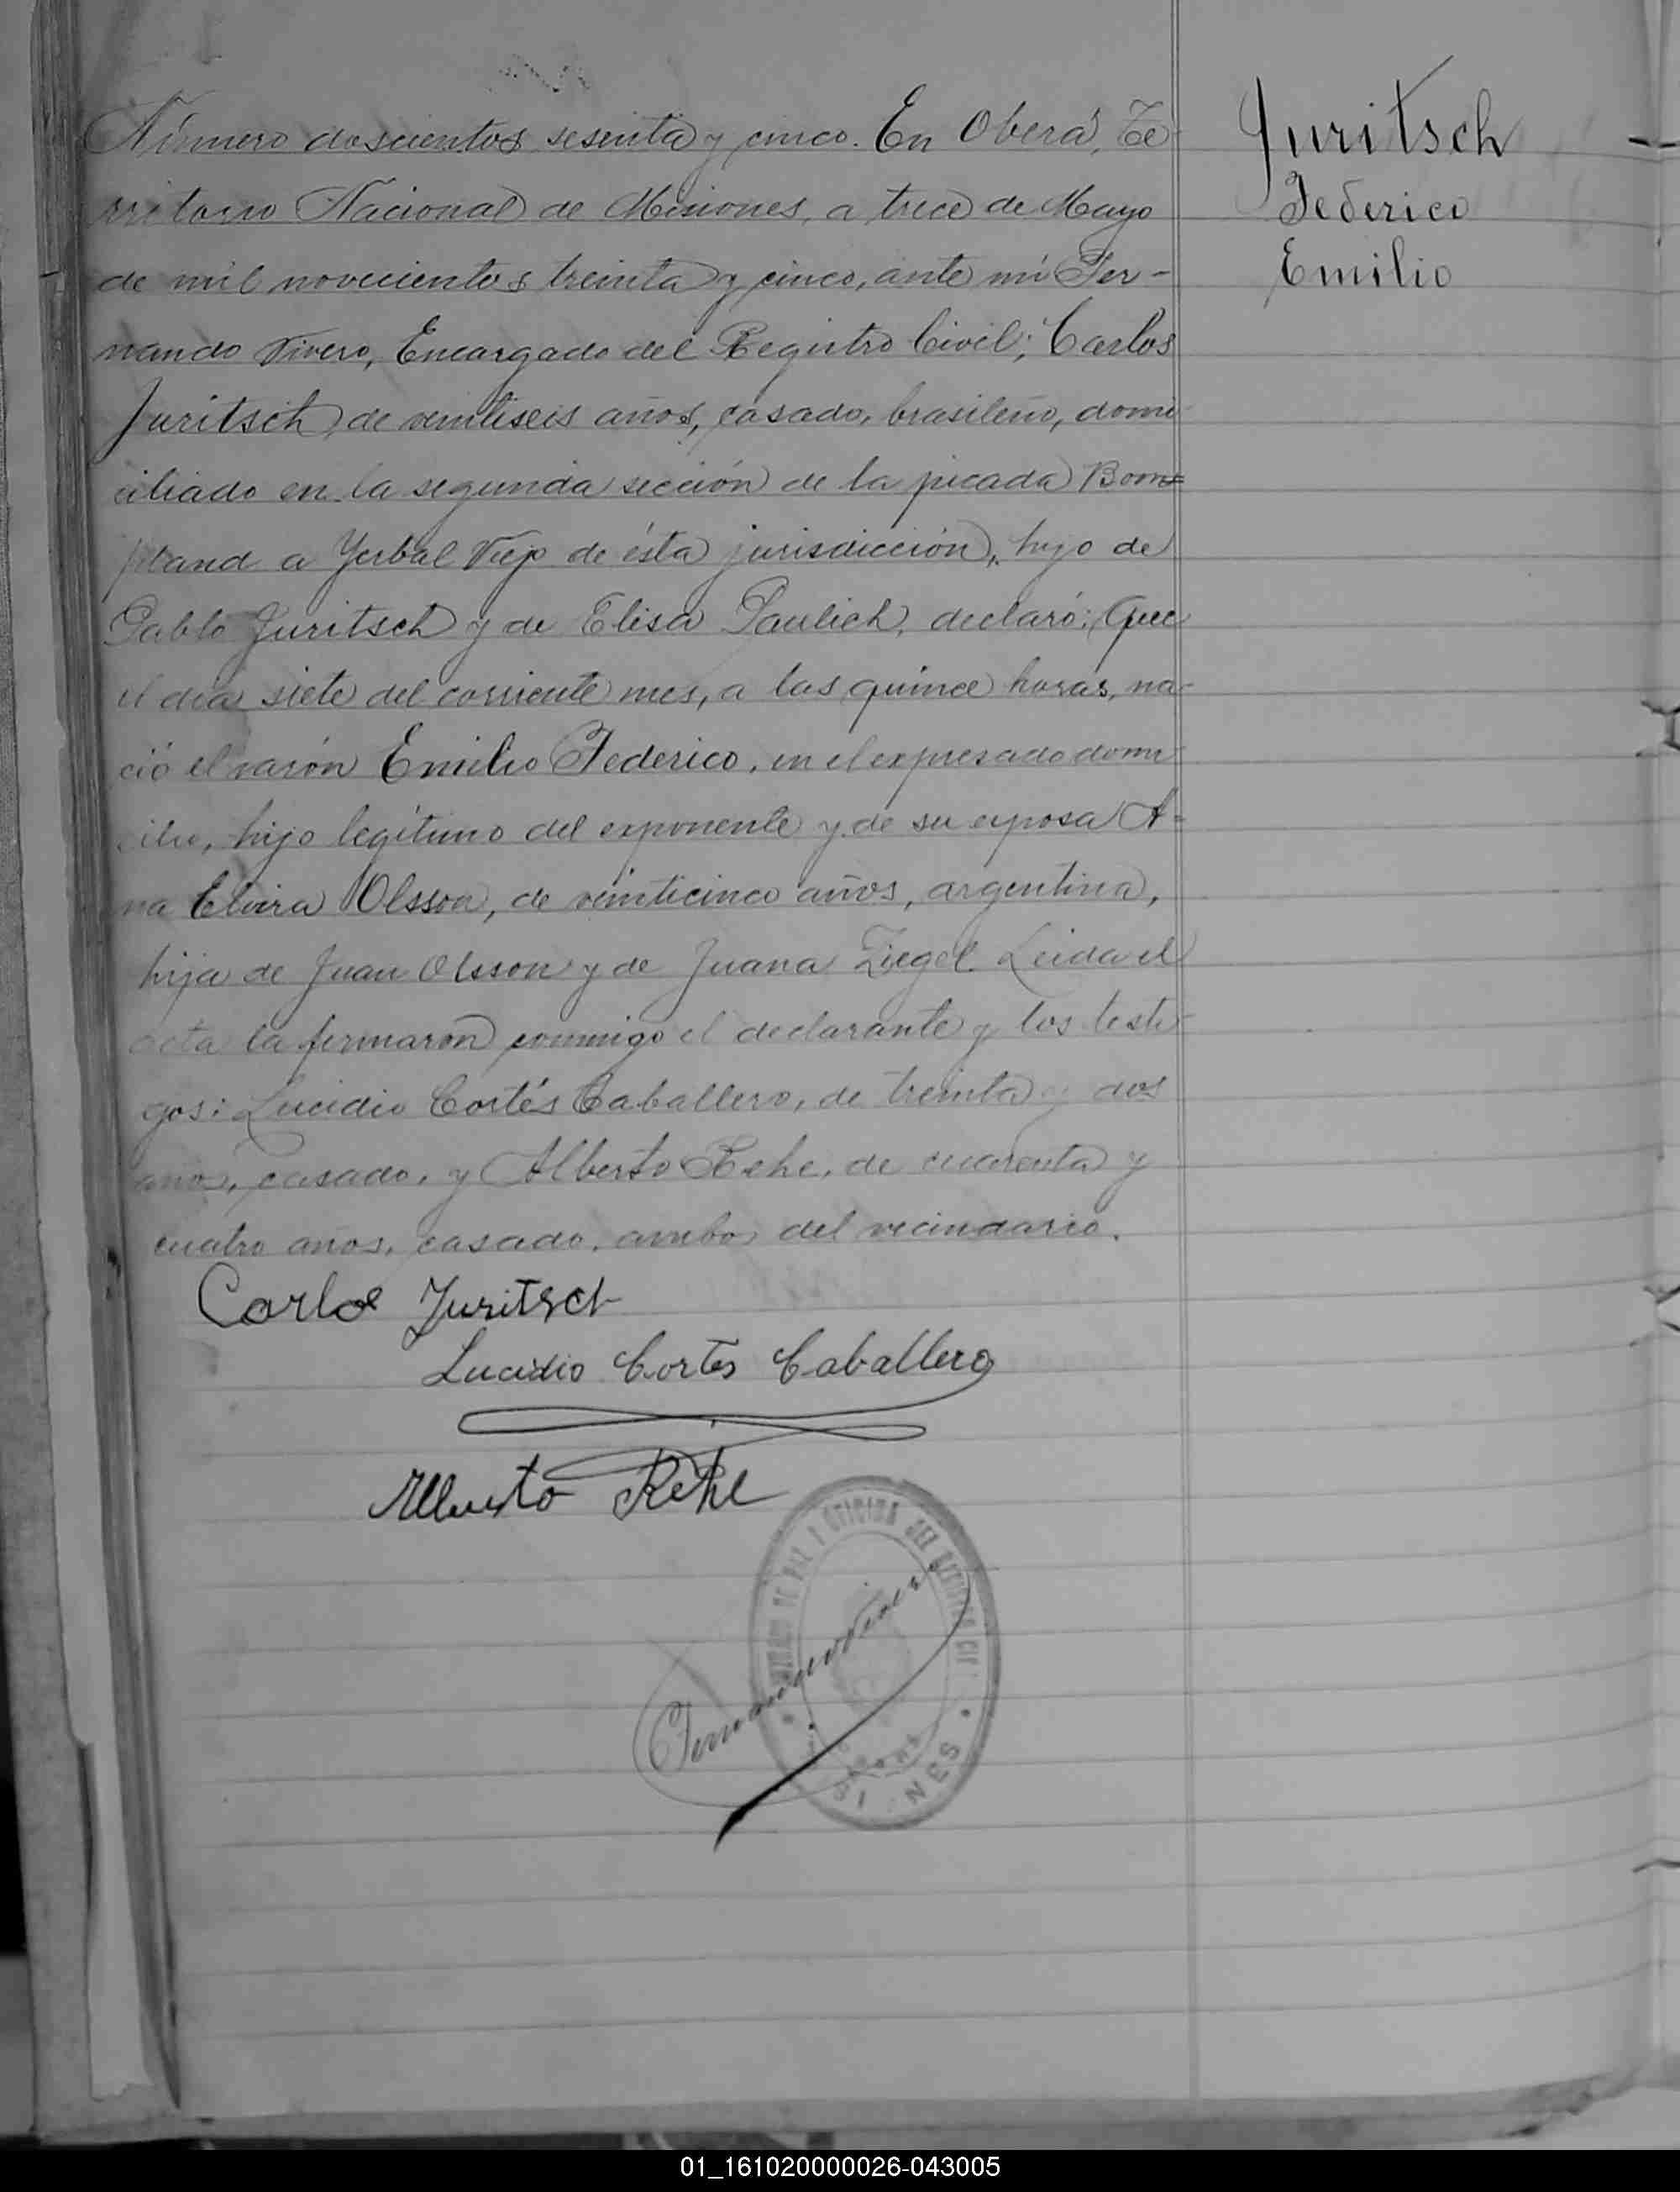 Número doscientos sesenta y cinco. En Oberá, Te-
rritorio Nacional de Misiones, a trece de Mayo
de mil novecientos treinta y cinco, ante mi Fer-
nando Vivero, Encargado del Registro Civil; Carlos
Juritsch, de veintiseis años, casado, brasileño, domi-
ciliado en la segunda sección de la picada Bom-
pland a Yerbal Viejo de ésta jurisdicción, hijo de
Pablo Juritsch y de Elisa Paulich, declaró: Que
el día siete del corriente mes, a las quince horas, na-
ció el varón Emilio Federico, en el expresado domi-
cilio, hijo legítimo del exponente y de su esposa A-
na Elvira Olsson, de veinticinco años, argentina,
hija de Juan Olsson y de Juana Ziegel. Leida el
acta la firmaron conmigo el declarante y los testi-
gos: Lucidio Cortés Caballero, de treinta y dos
años, casado, y Alberto Rehe, de cuarenta y
cuatro años, casado, ambos del vecindario.
Carlos Juritsch
Lucidio Cortes Caballero
Alberto Rehe
Fernando Vivero
Juritsch
Federico
Emilio
01_161020000026-043005